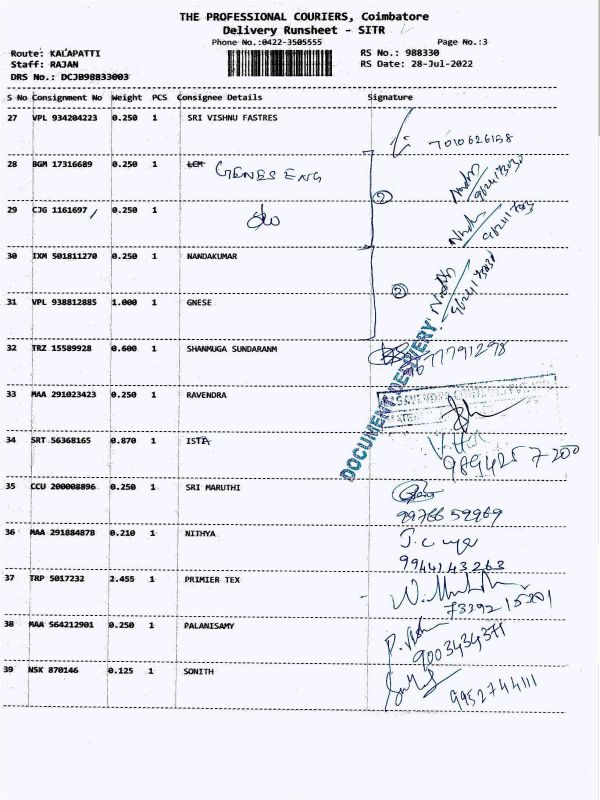 THE PROFESSIONAL COURIERS, Coimbatore
Delivery Runsheet - SITR
Phone No.:0422-3505555 Page No.:3
Route: KALAPATTI RS No.: 988330
Staff: RAJAN RS Date: 28-Jul-2022
DRS No.: DCJB98833003
S No Consignment No Weight PCS Consignee Details Signature
27 VPL 934204223 0.250 1 SRI VISHNU FASTRES
7010626158
28 BGM 17316689 0.250 1 LCM GENES ENG
29 CJG 1161697 0.250 1 do
2
30 IXM 501811270 0.250 1 NANDAKUMAR
31 VPL 938812885 1.000 1 GNESE
2
32 TRZ 15589928 0.600 1 SHANMUGA SUNDARANM
DOCUMENT DELIVERY
33 MAA 291023423 0.250 1 RAVENDRA
34 SRT 56368165 0.870 1 ISTA
9894257200
35 CCU 200008896 0.250 1 SRI MARUTHI
9976659969
36 MAA 291884878 0.210 1 NITHYA
9944143263
37 TRP 5017232 2.455 1 PRIMIER TEX
7339215201
38 MAA 564212901 0.250 1 PALANISAMY
9003434371
39 NSK 870146 0.125 1 SONITH
9952744111